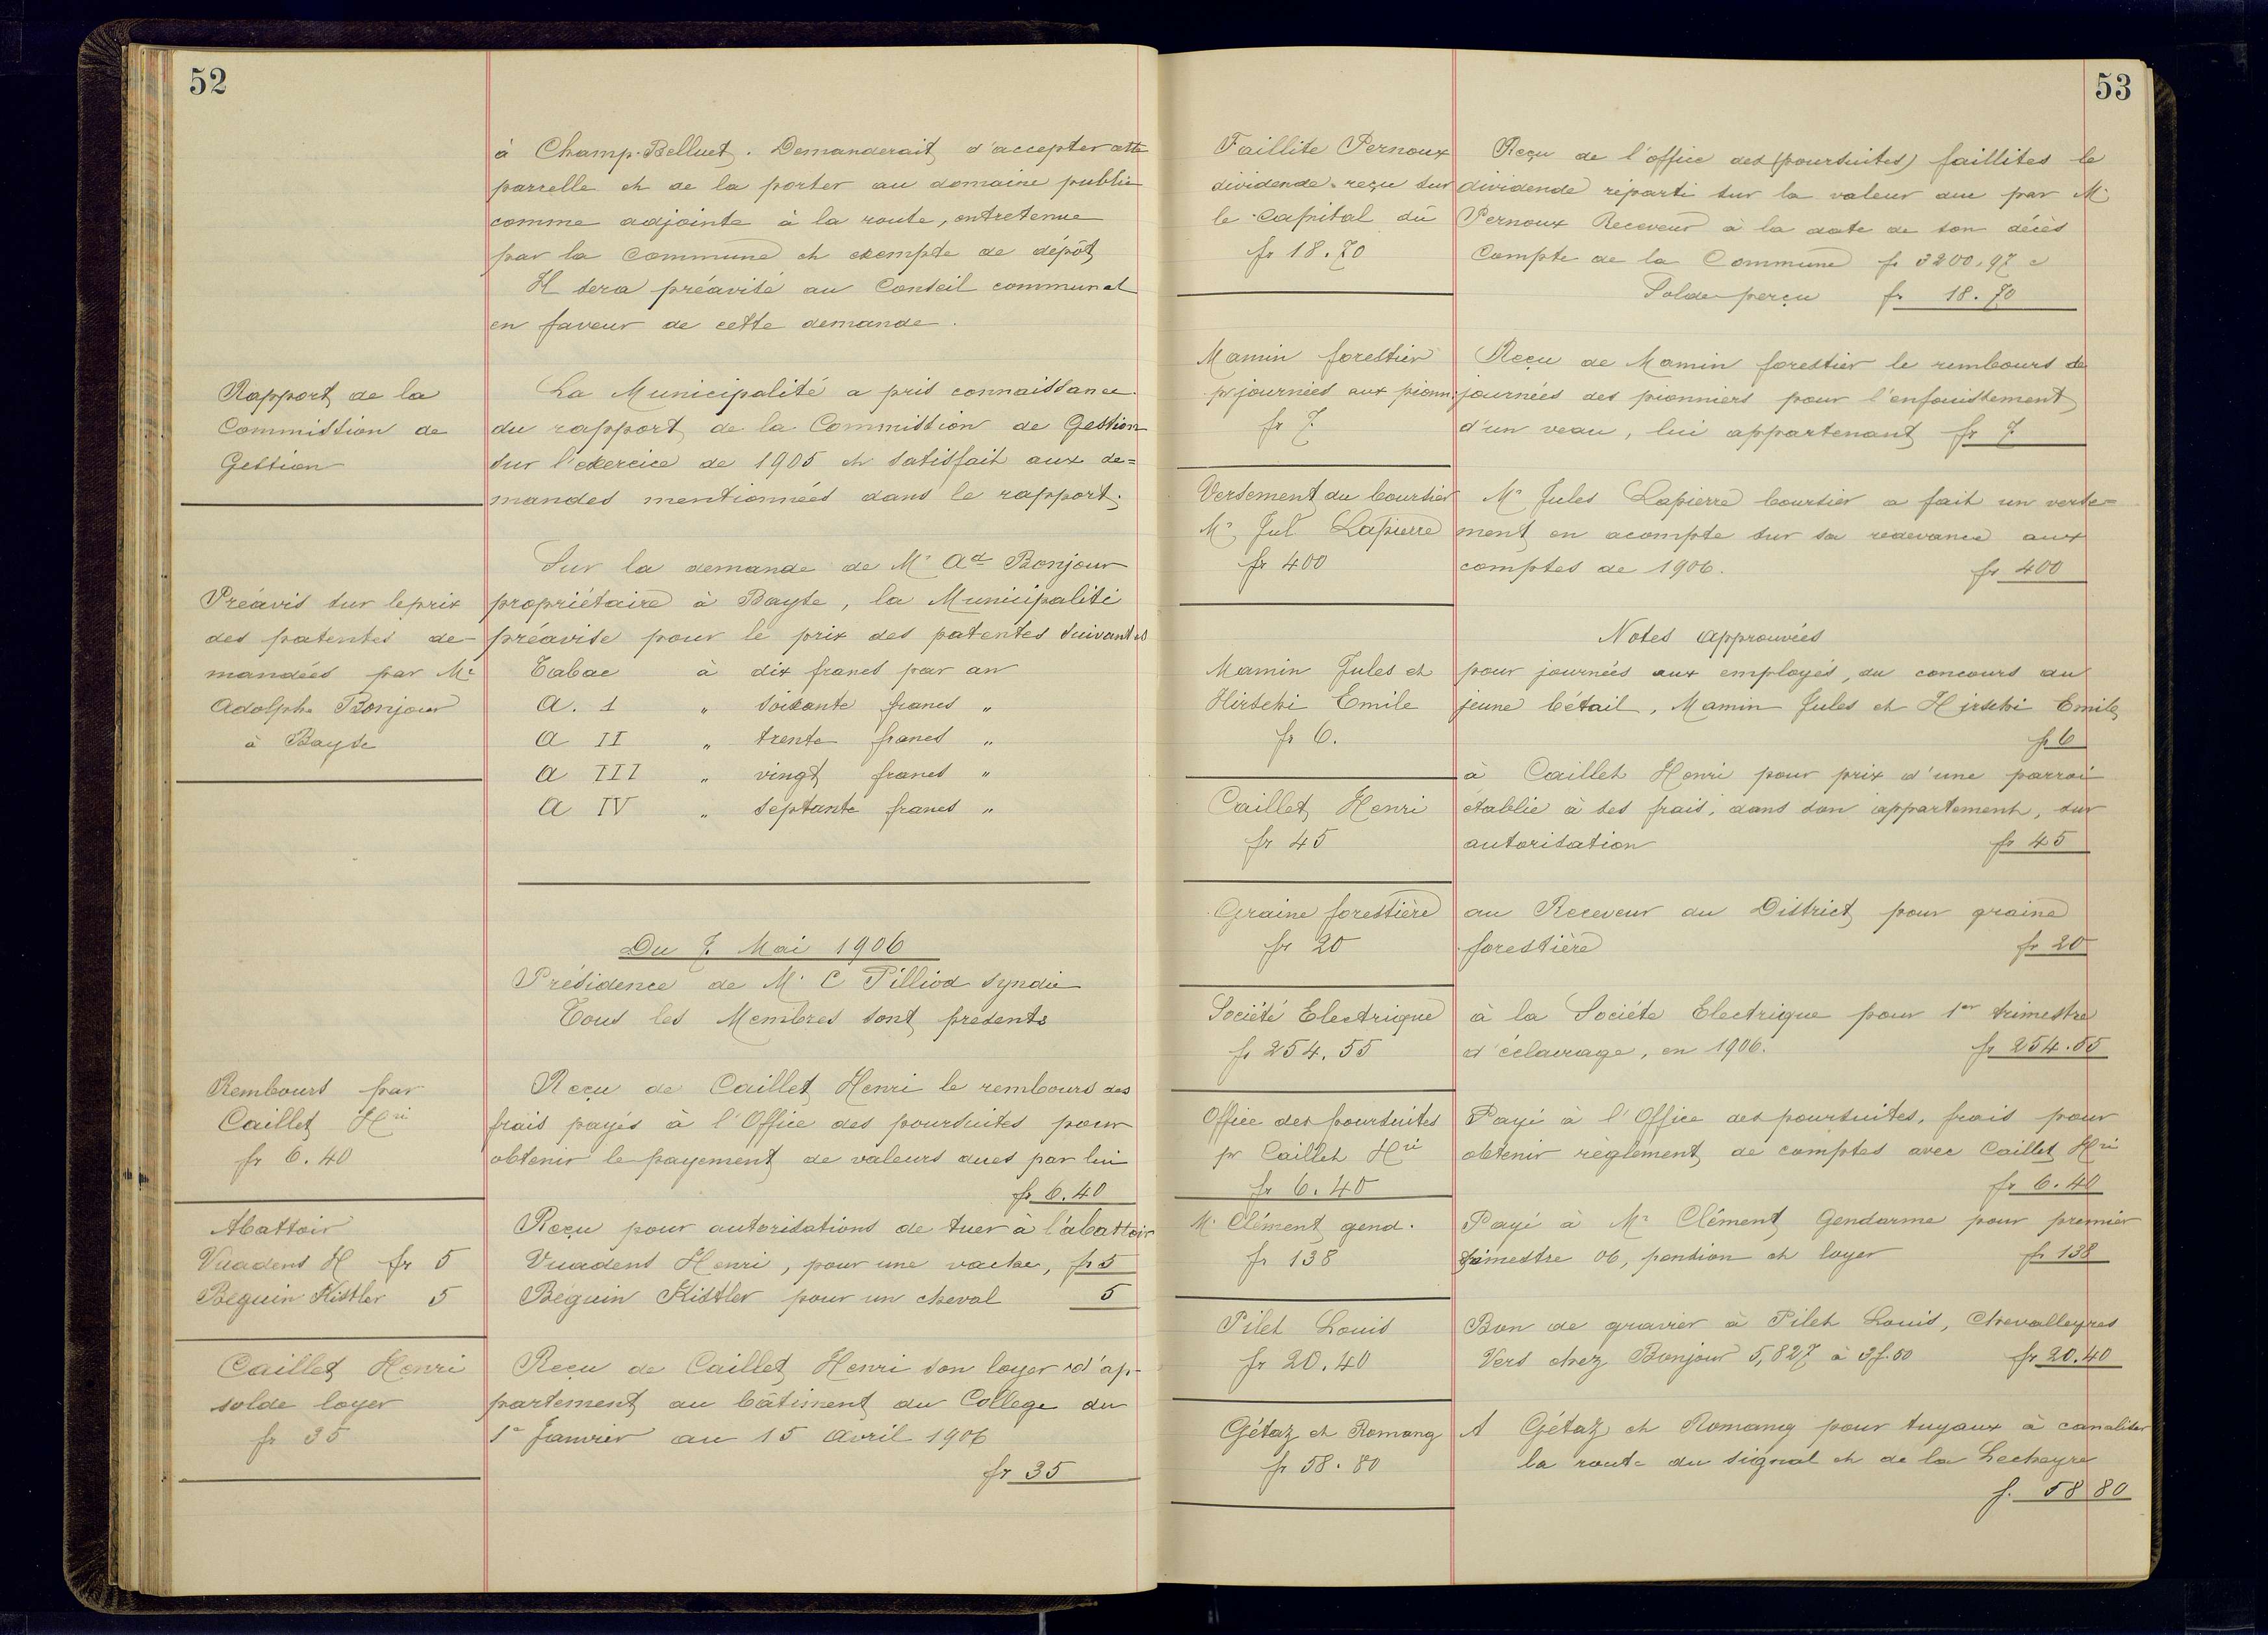 52
à Champ-Belluet. Demanderait d'accepter cette
parcelle et de la porter au domaine public
comme adjointe à la route, entretenue
par la Commune et exempte de dépôt
Il sera préavisé au Conseil communal
en faveur de cette demande.
Rapport de la
Commission de
Gestion
La Municipalité a pris connaissance
du rapport de la Commission de Gestion
sur l'exercice de 1905 et satisfait aux de=
mandes mentionnées dans le rapport.
Préavis sur le prix
des patentes de-
mandées par Mr
Adolphe Bonjour
à Bayse
Sur la demande de Mr Ad Bonjour
propriétaire à Bayse, la Municipalité
préavise pour le prix des patentes suivantes
Tabac à dix francs par an
A. 1 " soixante francs "
A II " trente francs "
A III " vingt francs "
A IV " septante francs "
Du 7 Mai 1906
Présidence de Mr C Pilliod Syndic
Tous les Membres sont présents
Rembours par
Caillet Hri
fr 6.40
Reçu de Caillet Henri le rembours des
frais payés à l'Office des poursuites pour
obtenir le payement de valeurs dues par lui
fr 6.40
Abattoir
Vuadens H fr 5
Béguin Kistler 5
Reçu pour autorisations de tuer à l'abattoir
Vuadens Henri, pour une vache, fr 5
Béguin Kistler pour un cheval 5
Caillet Henri
solde loyer
fr 35
Reçu de Caillet Henri son loyer d'ap-
partement au bâtiment du College du
1r Janvier au 15 Avril 1906
fr 35
53
Faillite Pernoux
dividende reçu sur
le capital dû
fr 18.70
Reçu de l'office des (poursuites) faillites le
dividende réparti sur la valeur due par Mr
Pernoux Receveur à la date de son décès
Compte de la Commune fr 3200.97 c
Solde perçu fr 18.70
Mamin forestier
pr journées aux pionn:
fr 7.
Reçu de Mamin forestier le rembours de
journées des pionniers pour l'enfouissement
d'un veau, lui appartenant fr 7
Versement du boursier
Mr Jul Lapierre
fr 400
Mr Jules Lapierre boursier a fait un verse=
ment en acompte sur sa redevance aux
comptes de 1906. fr 400
Notes approuvées
Mamin Jules et
Hirschi Emile
fr 6.
pour journées aux employés, du concours au
jeune bétail, Mamin Jules et Hirschi Emile
fr 6
Caillet Henri
fr 45
à Caillet Henri pour prix d'une parroi
établie à ses frais, dans son appartement, sur
autorisation fr 45
Graine forestière
fr 20
au Receveur du District pour graine
forestière fr 20
Société Electrique
fr 254.55
à la Société Electrique pour 1er trimestre
d'éclairage, en 1906. fr 254.55
Office des poursuites
pr Caillet Hri
fr 6.40
Payé à l'Office des poursuites, frais pour
obtenir règlement de comptes avec Caillet Hri
fr 6.40
Mr Clément gend.
fr 138
Payé à Mr Clément Gendarme pour premier
trimestre 06, pension et loyer fr 138
Pilet Louis
fr 20.40
Bon de gravier à Pilet Louis, Chevalleyres
Vers chez Bonjour 5,827 à 3f.50 fr 20.40
Gétaz et Romang
fr 58.80
A Gétaz et Romang pour tuyaux à canaliser
la route du signal et de la Lecheyre
f. 58 80